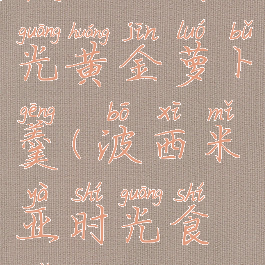 guāng huáng jīn luó bǔ
光黄金萝卜
gēng bō xī mǐ
羹(波西米
yà shí guāng shí
亚时光食